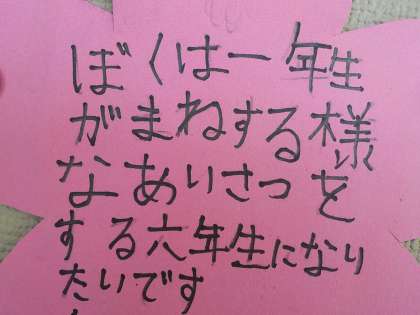 ぼくは一年生
がまねする様
なあいさつを
する六年生になり
たいです